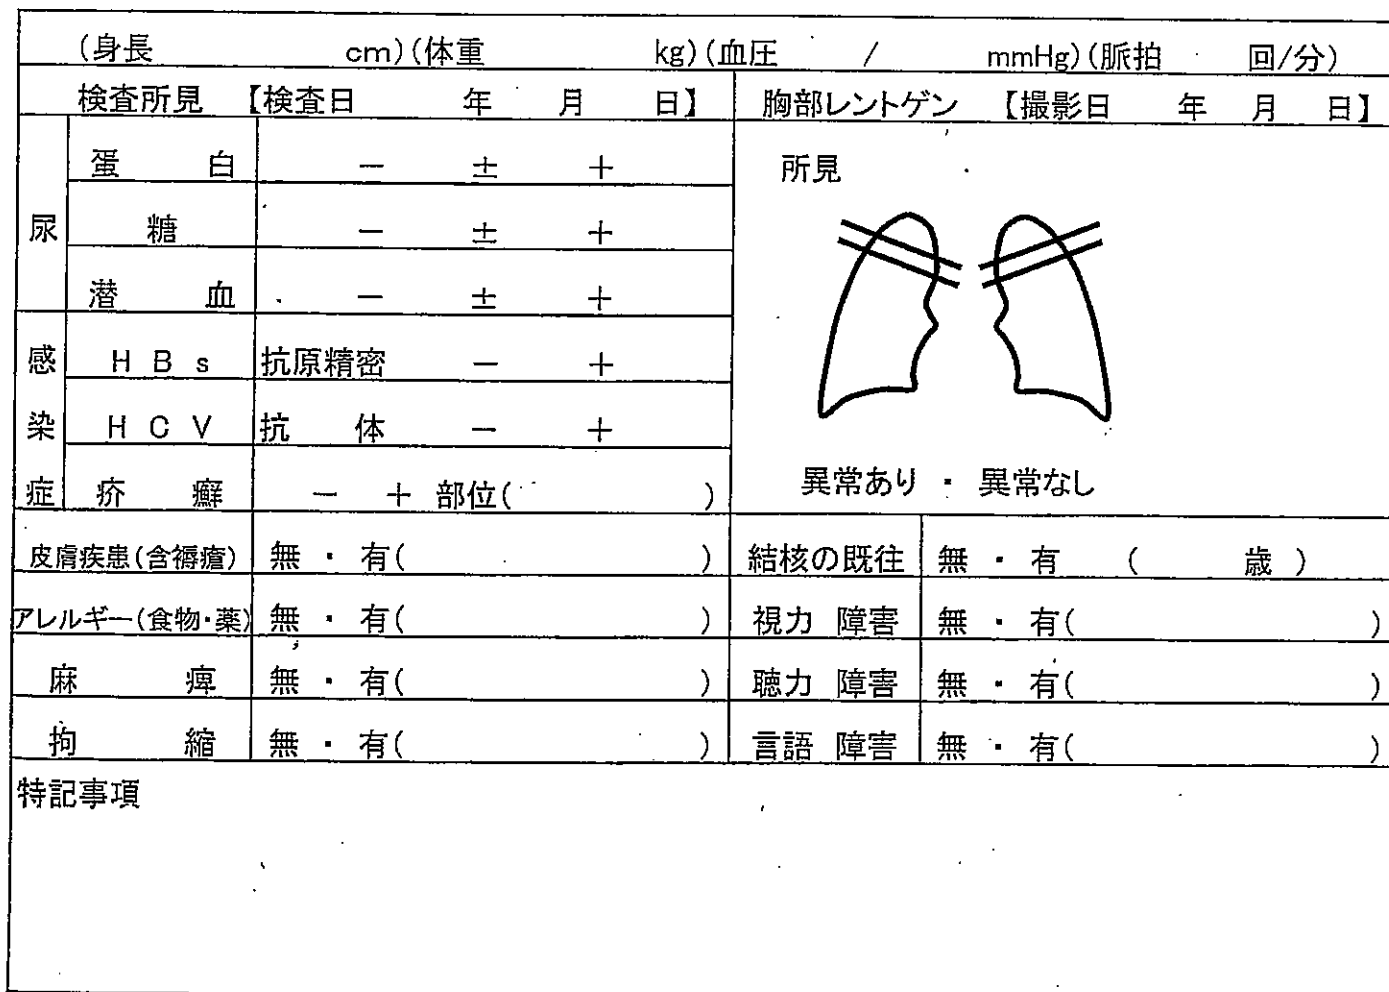 (身長 cm)(体重 kg)(血圧 / mmHg)(脈拍 回/分)
検査所見 【検査日 年 月 日】 胸部レントゲン 【撮影日 年 月 日】
尿 蛋白 － ± ＋
糖 － ± ＋
潜血 － ± ＋
所見
異常あり ・ 異常なし
感染症 HBs 抗原精密 － ＋
HCV 抗体 － ＋
疥癬 － ＋ 部位( )
皮膚疾患(含褥瘡) 無 ・ 有( ) 結核の既往 無 ・ 有 ( 歳 )
アレルギー(食物・薬) 無 ・ 有( ) 視力 障害 無 ・ 有( )
麻痺 無 ・ 有( ) 聴力 障害 無 ・ 有( )
拘縮 無 ・ 有( ) 言語 障害 無 ・ 有( )
特記事項